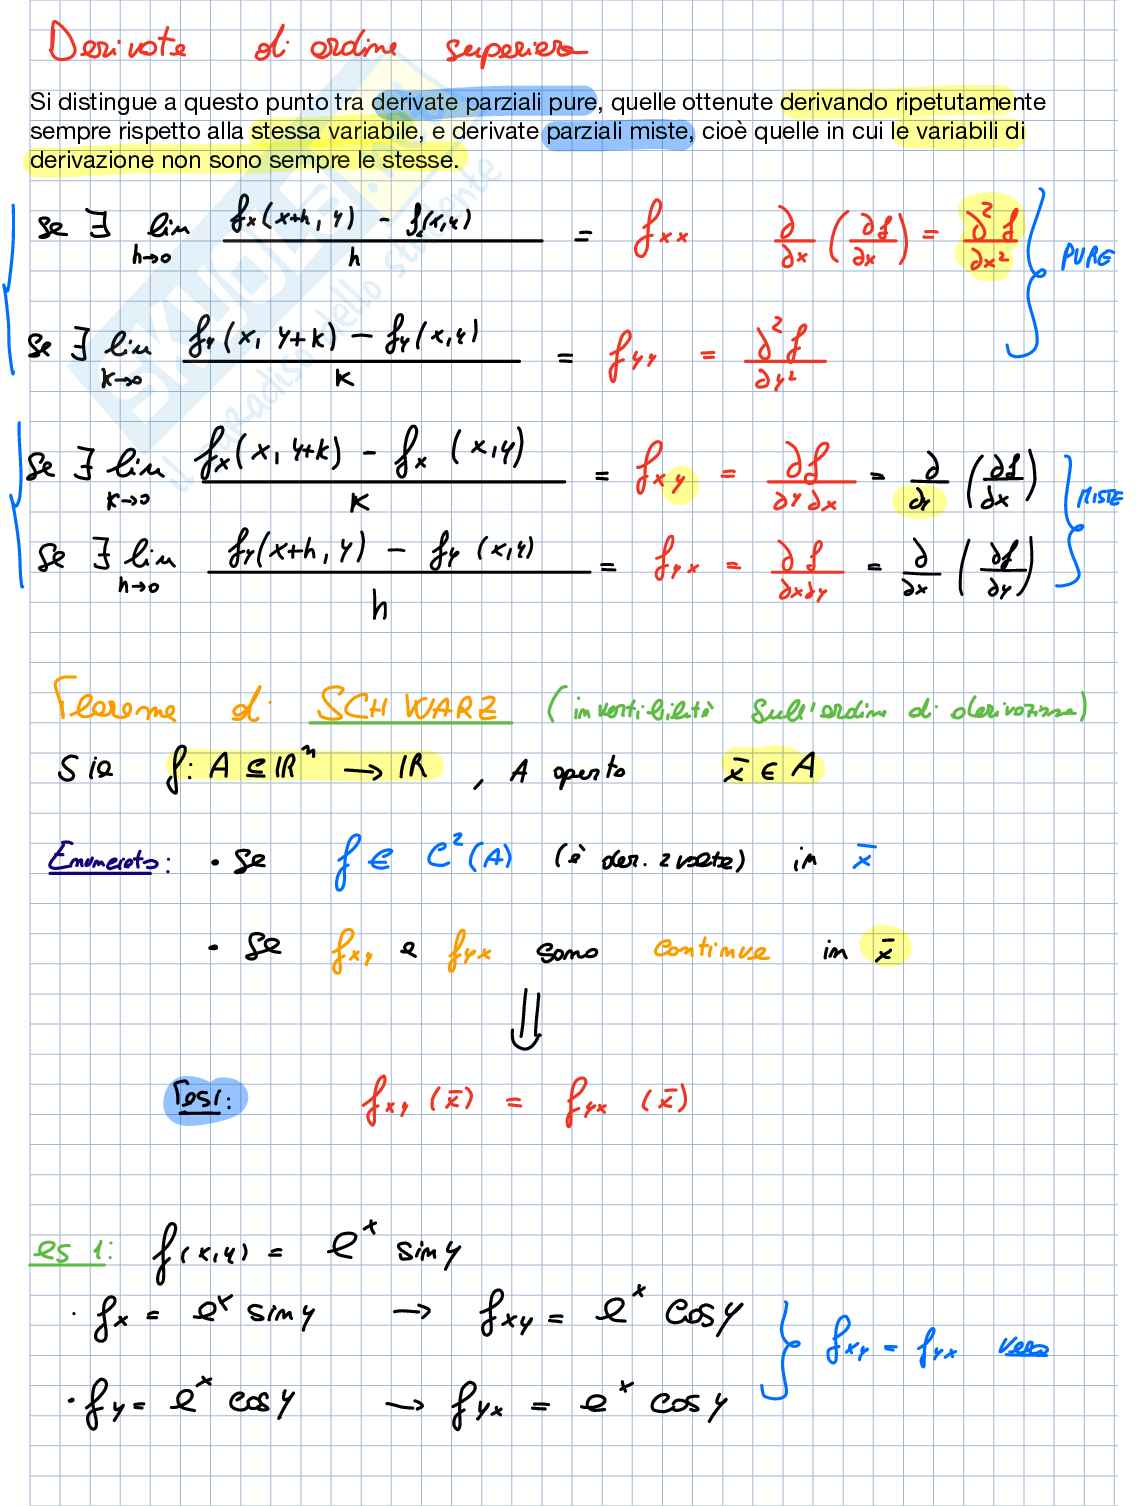 Derivate di ordine superiore
Si distingue a questo punto tra derivate parziali pure, quelle ottenute derivando ripetutamente
sempre rispetto alla stessa variabile, e derivate parziali miste, cioè quelle in cui le variabili di
derivazione non sono sempre le stesse.
se ∃ lim h→0 (fx(x+h, y) - fx(x,y)) / h = fxx ∂/∂x (∂f/∂x) = ∂²f/∂x² PURE
se ∃ lim k→0 (fy(x, y+k) - fy(x,y)) / k = fyy = ∂²f/∂y²
se ∃ lim k→0 (fx(x, y+k) - fx (x,y)) / k = fxy = ∂f/∂y∂x = ∂/∂y (∂f/∂x) MISTE
se ∃ lim h→0 (fy(x+h, y) - fy (x,y)) / h = fyx = ∂f/∂x∂y = ∂/∂x (∂f/∂y)
Teorema di SCHWARZ (invertibilità sull'ordine di derivazione)
Sia f: A ⊆ ℝⁿ → ℝ, A aperto x̄ ∈ A
Enunciato: • Se f ∈ C²(A) (è der. 2 volte) in x̄
• Se fxy e fyx sono continue in x̄
⇓
Tesi: fxy (x̄) = fyx (x̄)
es 1: f(x,y) = eˣ sin y
• fx = eˣ sin y → fxy = eˣ cos y
fxy = fyx vero
• fy = eˣ cos y → fyx = eˣ cos y
SKUOLA.net
il paradiso dello studente